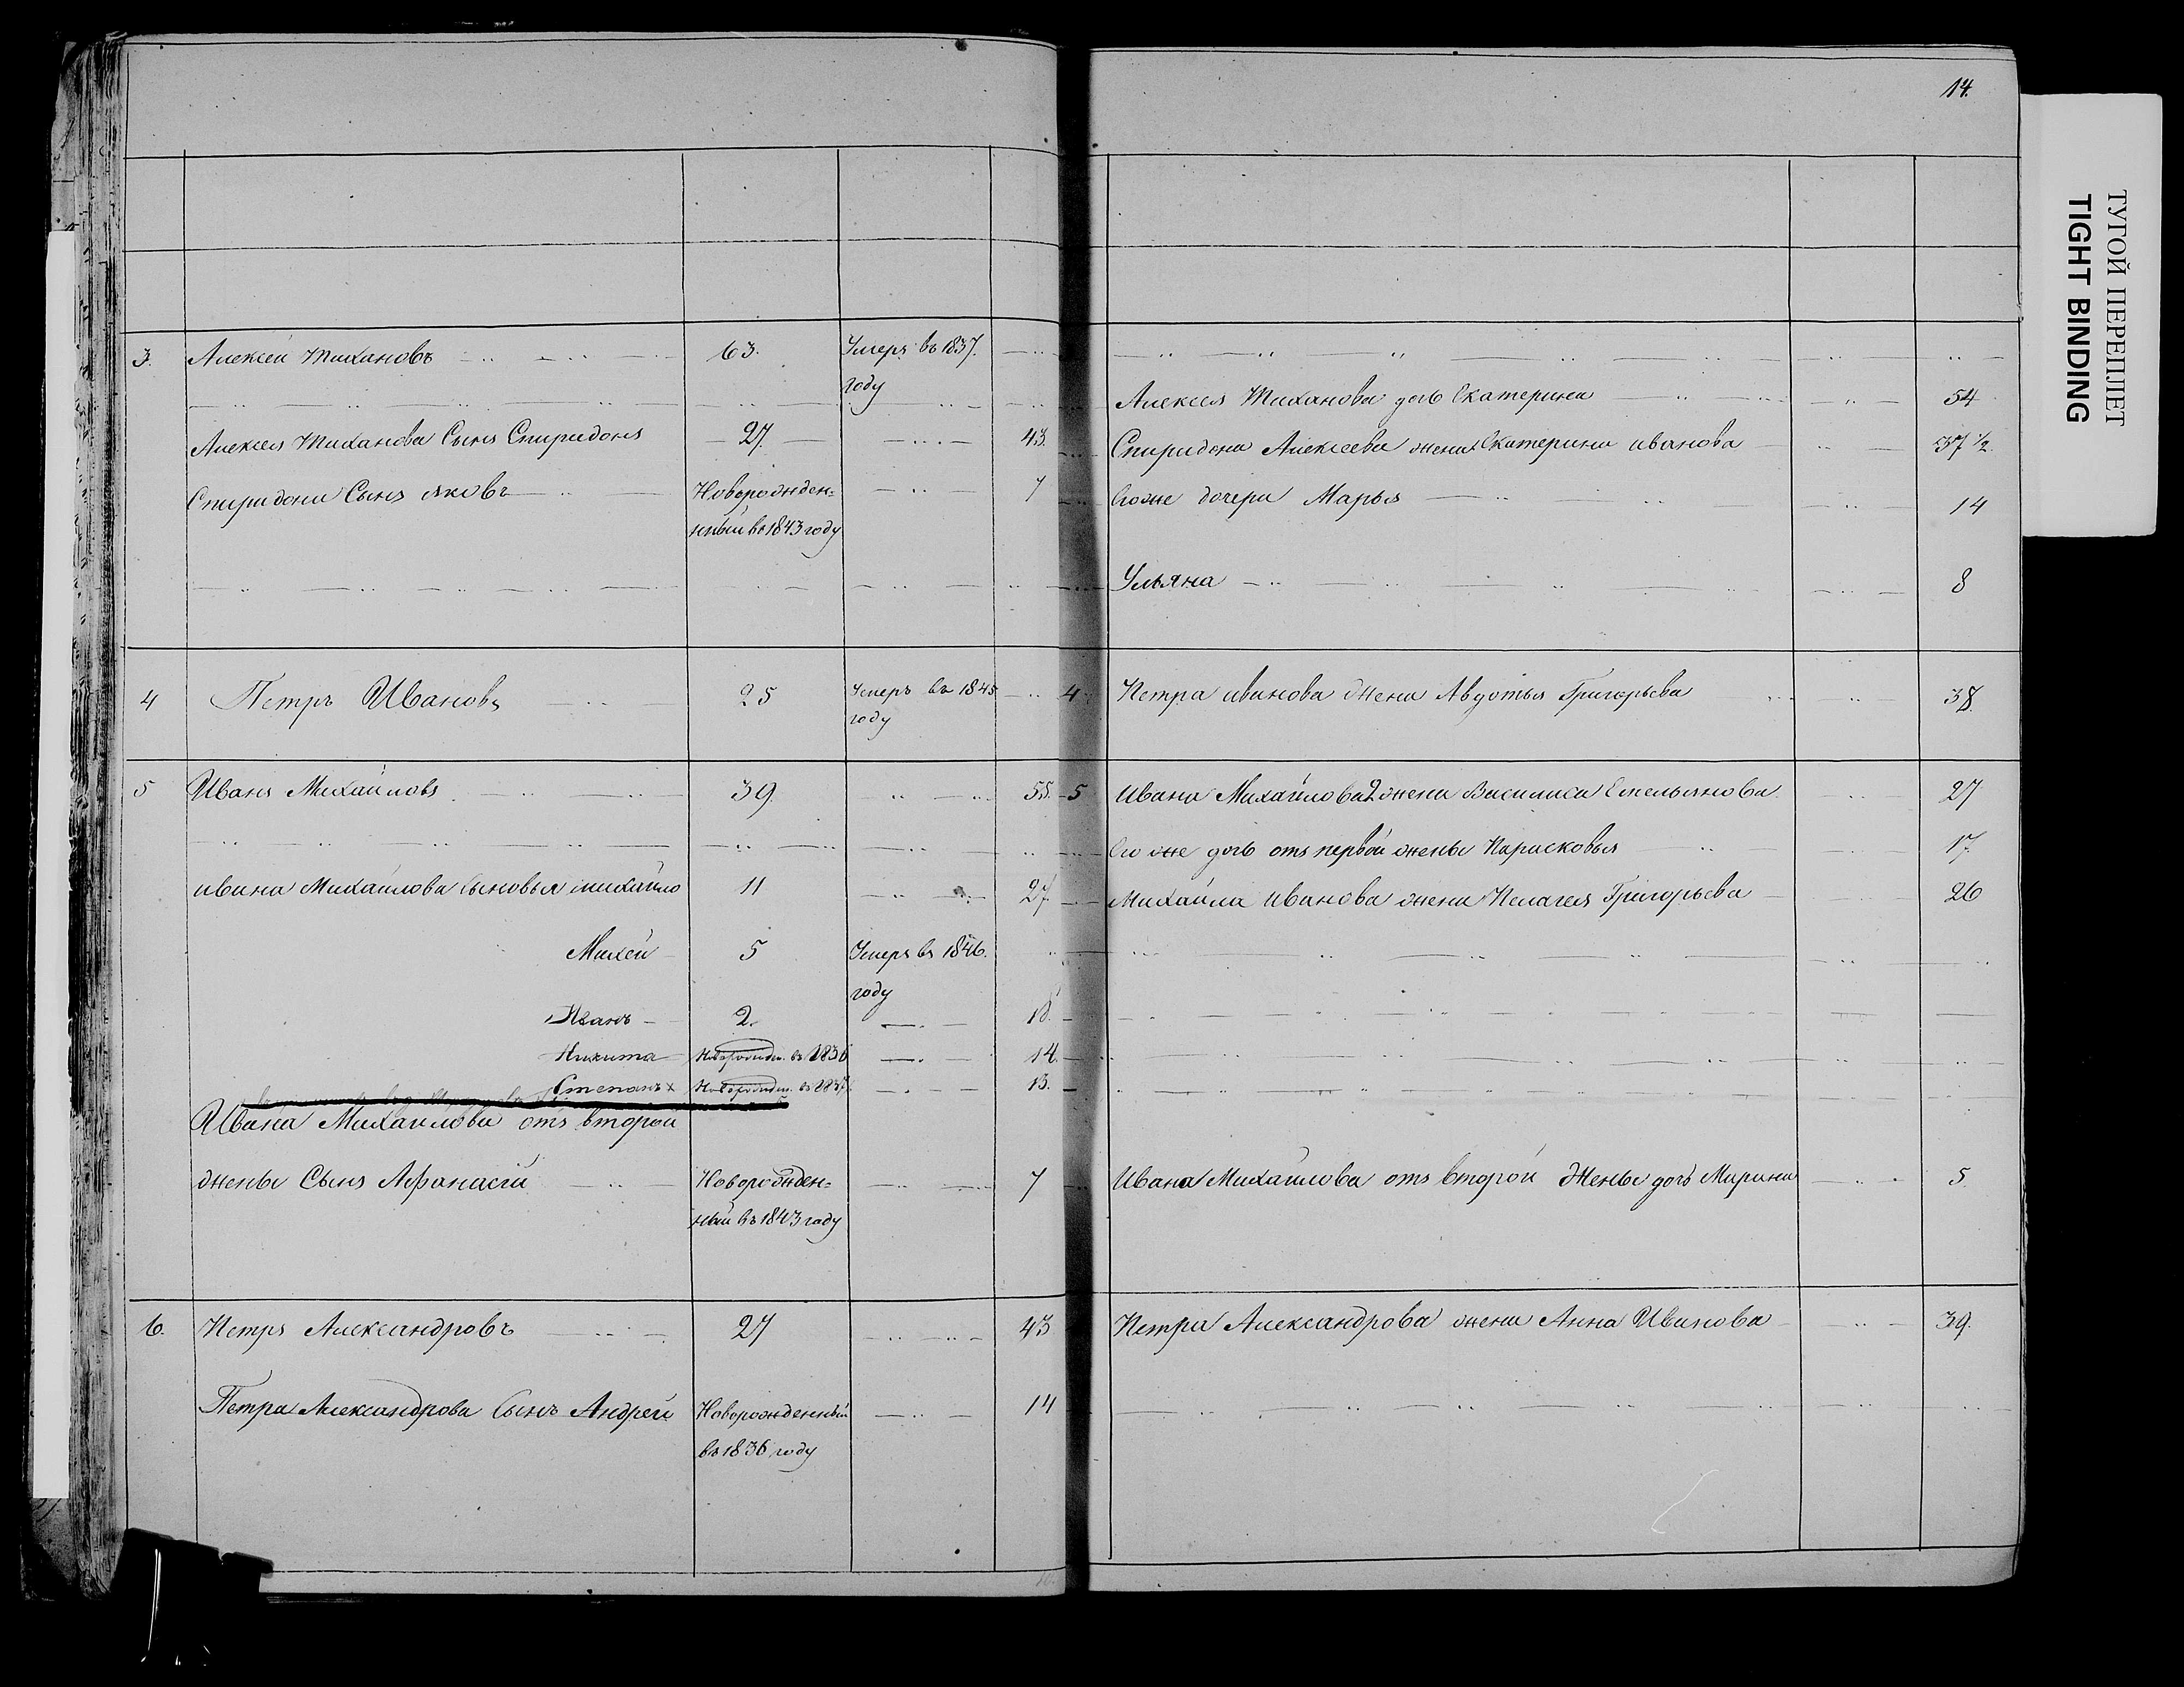 14.
3. Алексей Тихановъ 63. Умеръ въ 1837.
году
Алексея Тиханова дочь Екатерина 54
Алексея Тиханова Сынъ Спиридонъ 27. 43.
Спиридона Алексеева жена Екатерина иванова 37 1/2
Спиридона Сынъ яковъ Новорожден= 7
ный въ 1843 году
Его же дочери Марья 14
Ульяна 8
4 Петръ Ивановъ 25 Умеръ въ 1845
году
4 Петра иванова жена Авдотья Григорьева 38.
5 Иванъ Михайловъ 39. 55.
5 Ивана Михайлова 2 жена Василиса Емельянова 27
Его же дочь отъ первой жены Парасковья 17.
ивана Михайлова сыновья михайло 11 27.
Михайла иванова жена Пелагея Григорьева 26
Михей 5 Умеръ въ 1846.
году
Иванъ 2. 18.
Никита Новорожден. въ 1836 14.
Степанъ х Новорожден. въ 1837. 13.
Ивана Михайлова отъ второй
жены Сынъ Афанасій Новорожден= 7
ный въ 1843 году
Ивана Михайлова отъ второй Жены дочь Марина 5.
6. Петръ Александровъ 27 43
Петра Александрова жена Анна Иванова 39.
Петра Александрова Сынъ Андрей Новорожденный 14
въ 1836 году
ТУГОЙ ПЕРЕПЛЕТ
TIGHT BINDING